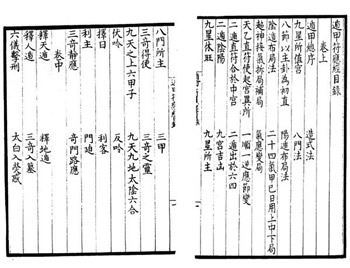 遁甲符應經目錄
卷上
遁甲總序 造式法
九星所值宮 八門法
八節以主卦為初直 陽遁布局法
陰遁布局法 二十四氣甲己日用上中下局
超神接氣拆局補局 氣應變局
天乙直符使起宮異所 一順一逆應節變
二遁直符合於中宮 二遁出於六四
二遁陰陽 九宮吉凶
九星休旺 九星所主
八門所主 三甲
三奇得使 三奇之靈
九天之上六甲子 九天九地太陰六合
伏吟 反吟
擇日 利客
利主 門迫
三奇静應 奇門路應
卷中
釋天遁 釋地遁
釋人遁 三奇入墓
六儀擊刑 太白入熒惑